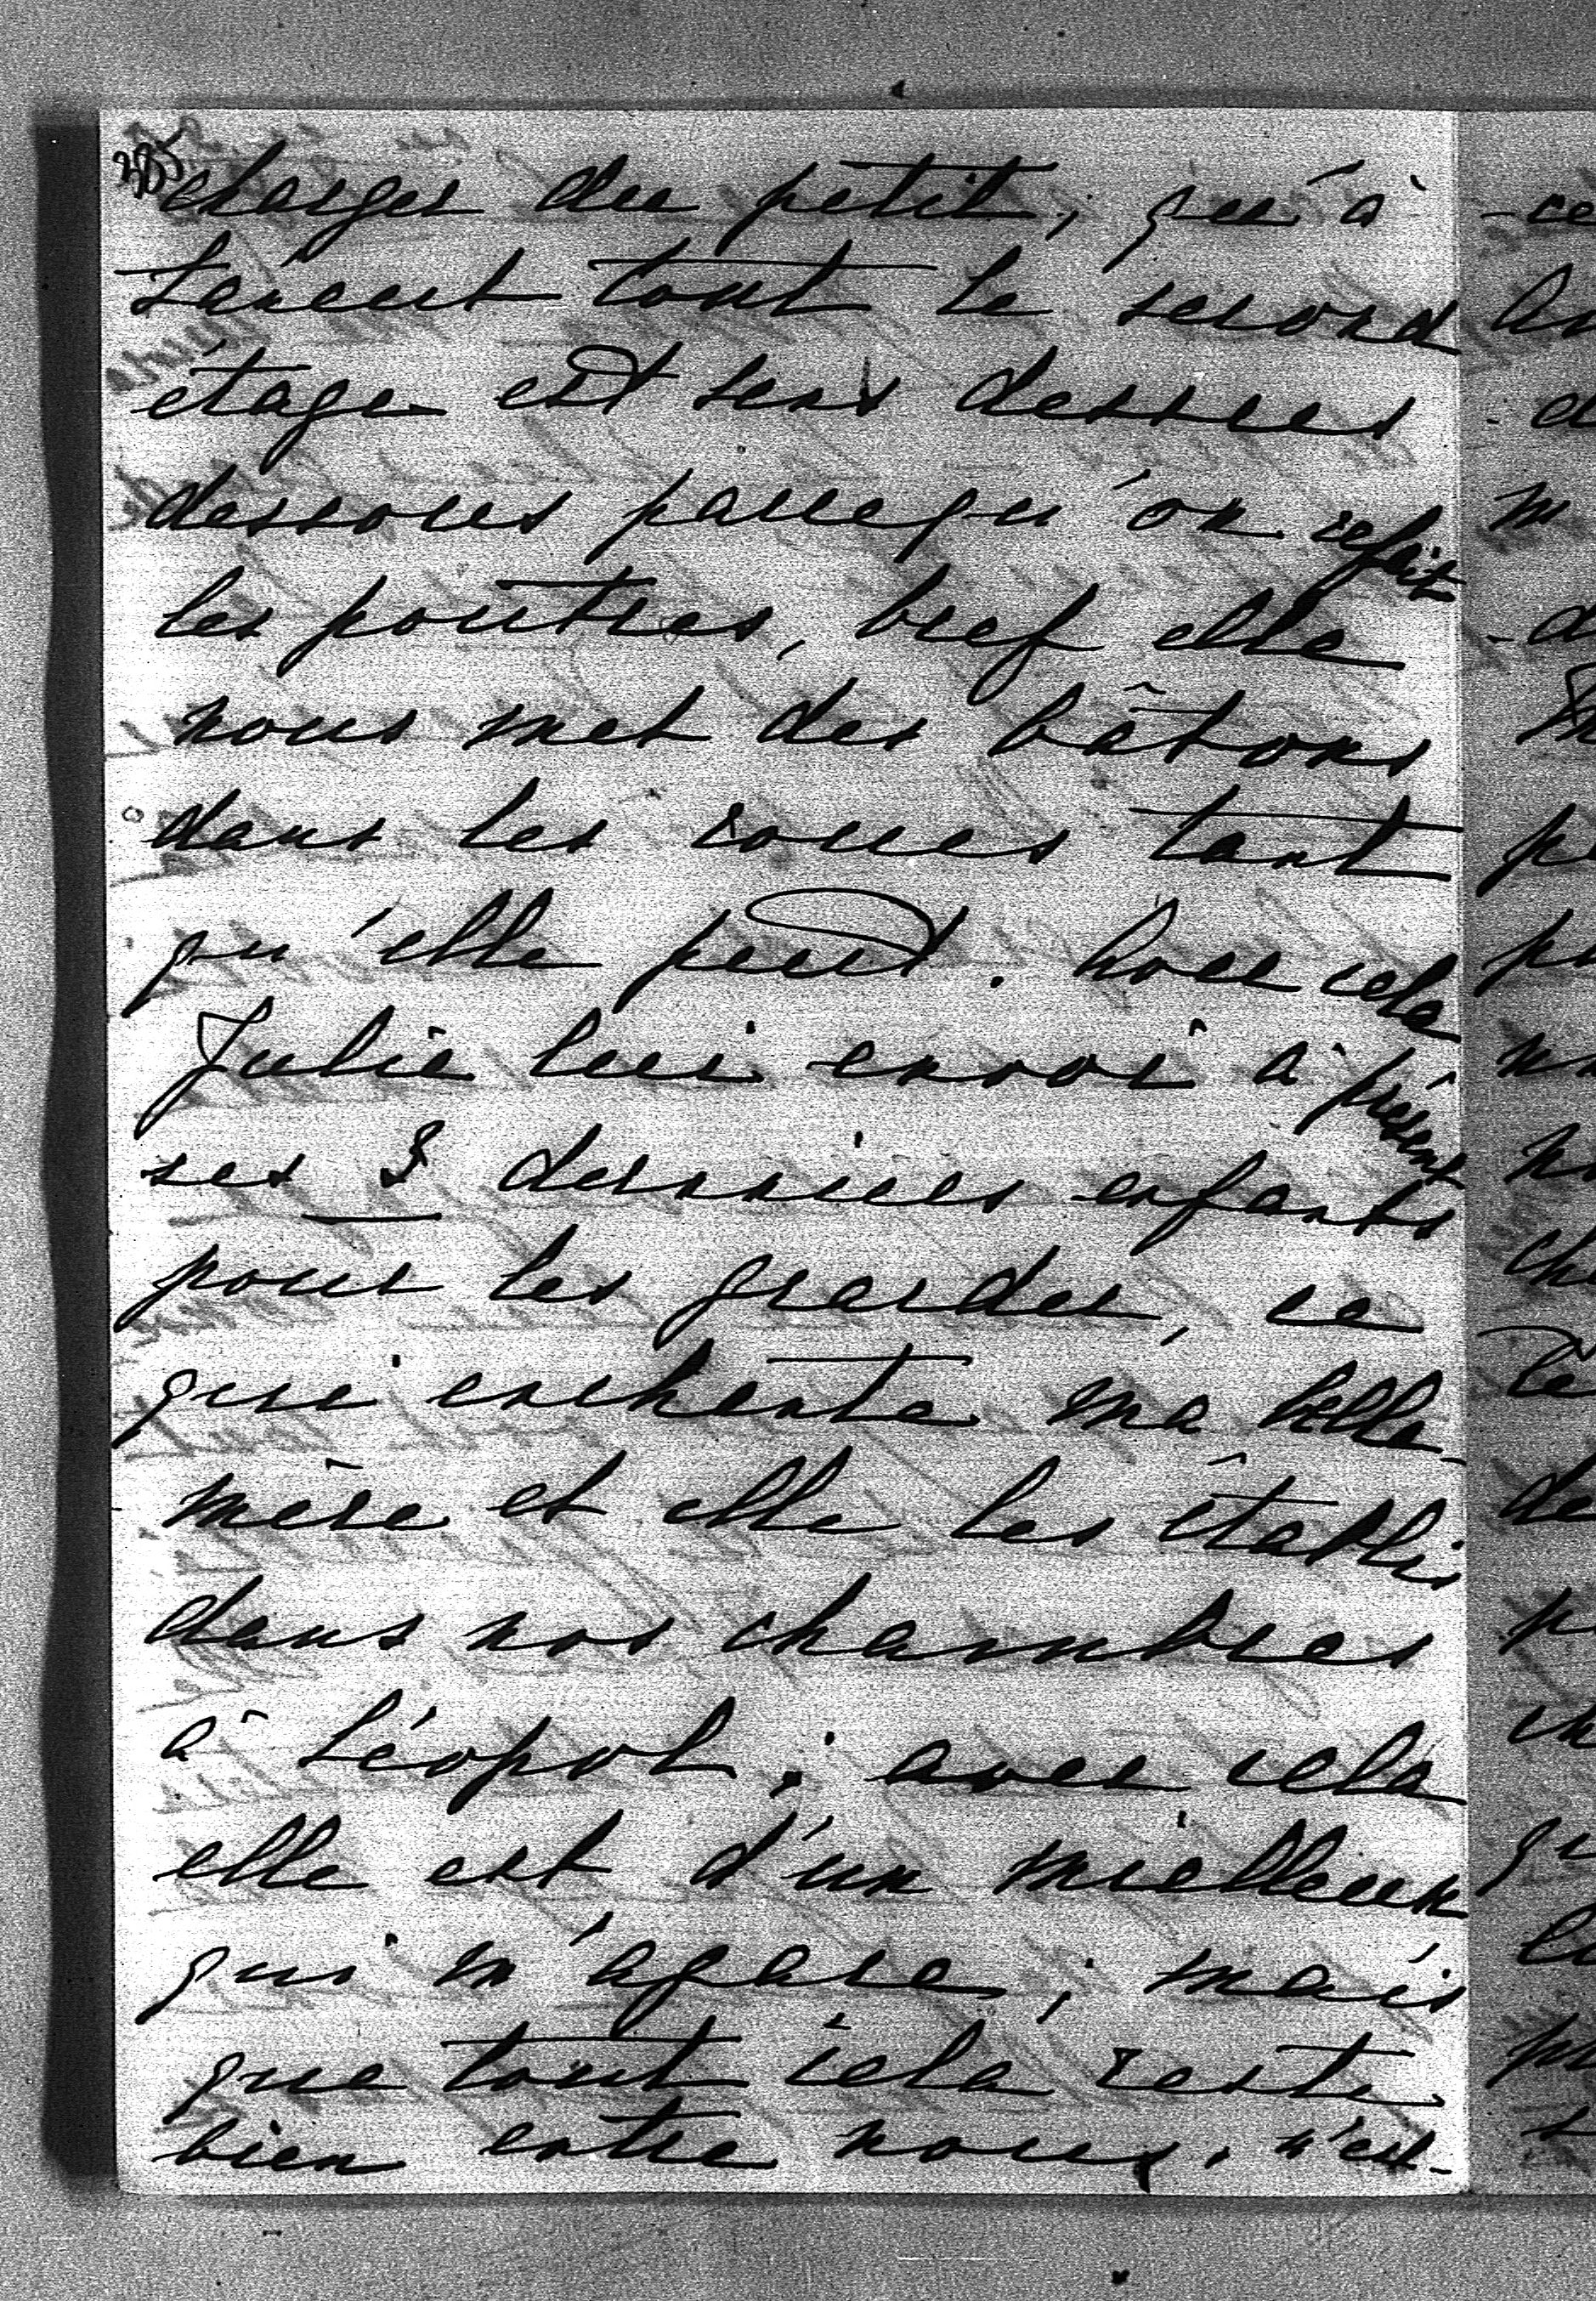 385
charger du petit; qu'à
Lancut tout le second
étage est sens dessus
dessous parcequ'on refait
les poûtres, bref elle
nous met des bâtons
dans les roues tant
qu'elle peut. Avec cela
Julie lui envoi à présent
ses 3 derniers enfants
pour les garder, ce
qui enchante ma belle-
mère et elle les établi
dans nos chambres
à Léopol; avec cela
elle est d'un mielleux
qui m'agace; mais
que tout cela reste
bien entre nous, n'est-